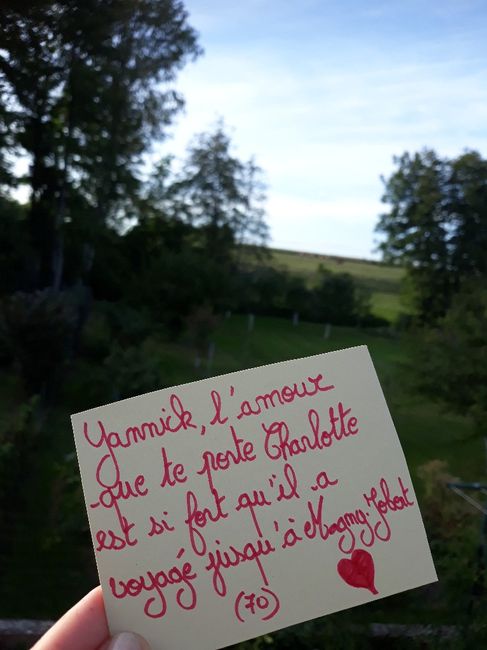 Yannick, l'amour
que te porte Charlotte
est si fort qu'il a
voyagé jusqu'à Magny Jobert
(70)